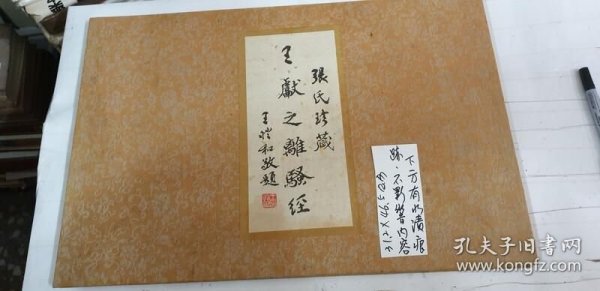 張氏珍藏
王獻之離騷經
王愷和敬題
下方有水漬痕
跡，不影響內容
31.2X46.5公分
孔夫子旧书网
www.kongfz.com